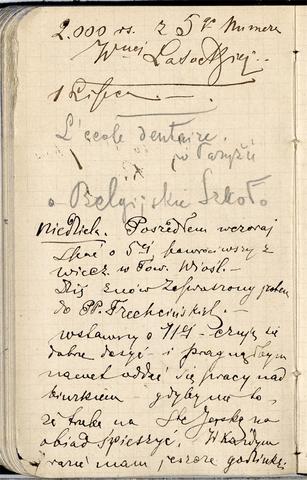 2.000 rs. z 5go Numeru
Wnej
1 Lipca. —
L'ecole dentaire.
w Paryżu
a Belgijskie Szkoło
Niedziela. Poszedłem wczoraj
spać o 5ej powróciwszy z
wiecz. w Tow. Wiośl. —
Dziś znów zaproszony jestem
do PP. Trechcińskich. —
wstawszy o 11ej — czuję się
dobrze dosyć — i pragnąłbym
nawet oddać się pracy nad
biurkiem gdyby nie to,
że trzeba na Sto Jerską na
obiad spieszyć. W każdym
razie mam jeszcze godzinkę